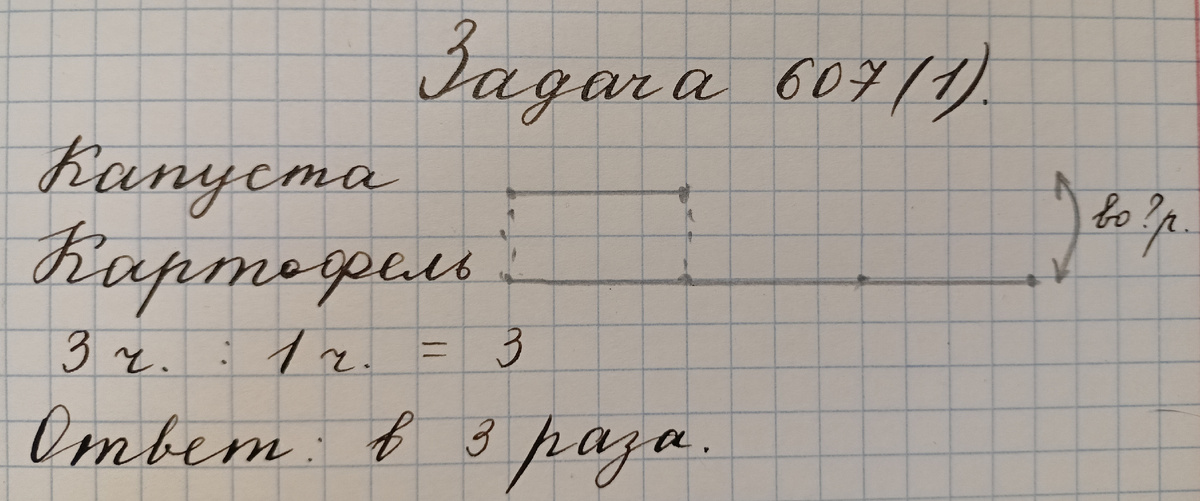 Задача 607(1).
Капуста
во ? р.
Картофель
3 ч. : 1 ч. = 3
Ответ: в 3 раза.